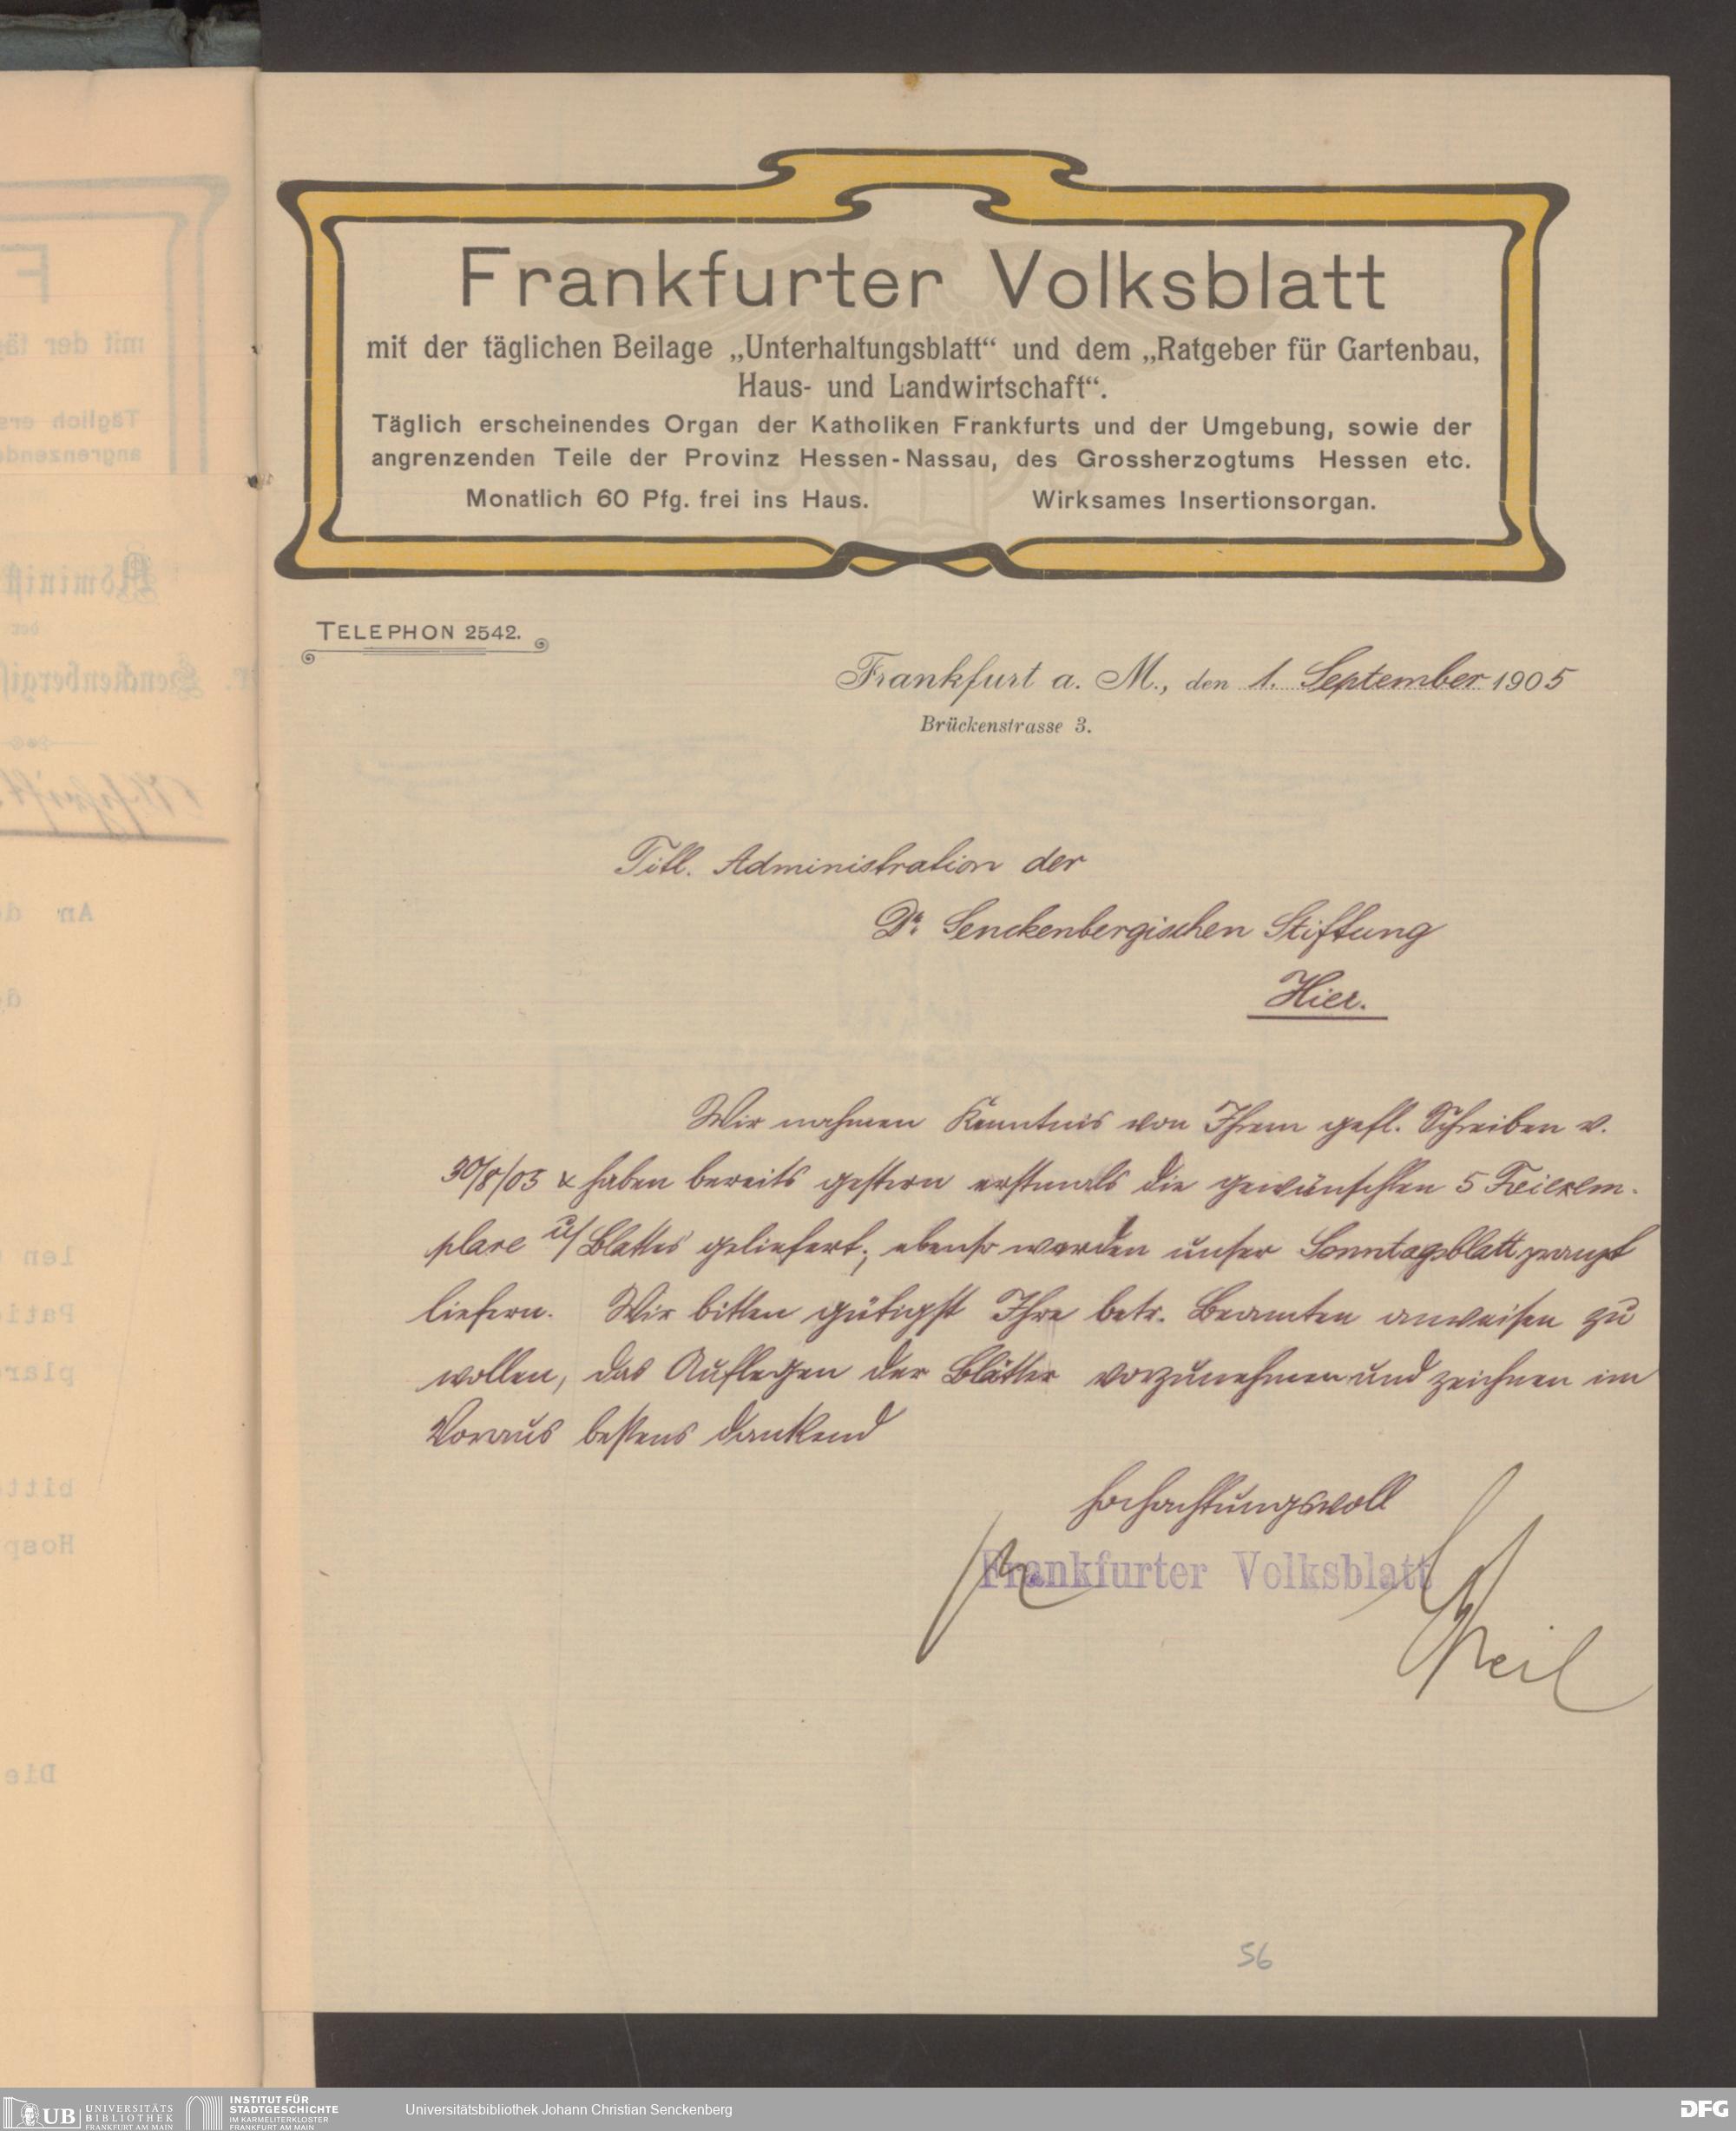 Frankfurter Volksblatt
mit der täglichen Beilage „Unterhaltungsblatt“ und dem „Ratgeber für Gartenbau,
Haus- und Landwirtschaft“.
Täglich erscheinendes Organ der Katholiken Frankfurts und der Umgebung, sowie der
angrenzenden Teile der Provinz Hessen-Nassau, des Grossherzogtums Hessen etc.
Monatlich 60 Pfg. frei ins Haus. Wirksames Insertionsorgan.
TELEPHON 2542.
Frankfurt a. M., den 1. September 1905
Brückenstrasse 3.
Titl. Administration der
Dr. Senckenbergischen Stiftung
Hier.
Wir nahmen Kenntnis von Ihrem gefl. Schreiben v.
30/8/05 & haben bereits gestern erstmals die gewünschten 5 Freiexem-
plare u/ Blattes geliefert; ebenso werden unser Sonntagsblatt prompt
liefern. Wir bitten gütigst Ihre betr. Beamten anweisen zu
wollen, das Auflegen der Blätter vorzunehmen und zeichnen im
Voraus bestens dankend
Hochachtungsvoll
Frankfurter Volksblatt
56
UB UNIVERSITÄTS
BIBLIOTHEK
FRANKFURT AM MAIN
INSTITUT FÜR
STADTGESCHICHTE
IM KARMELITERKLOSTER
FRANKFURT AM MAIN
Universitätsbibliothek Johann Christian Senckenberg
DFG